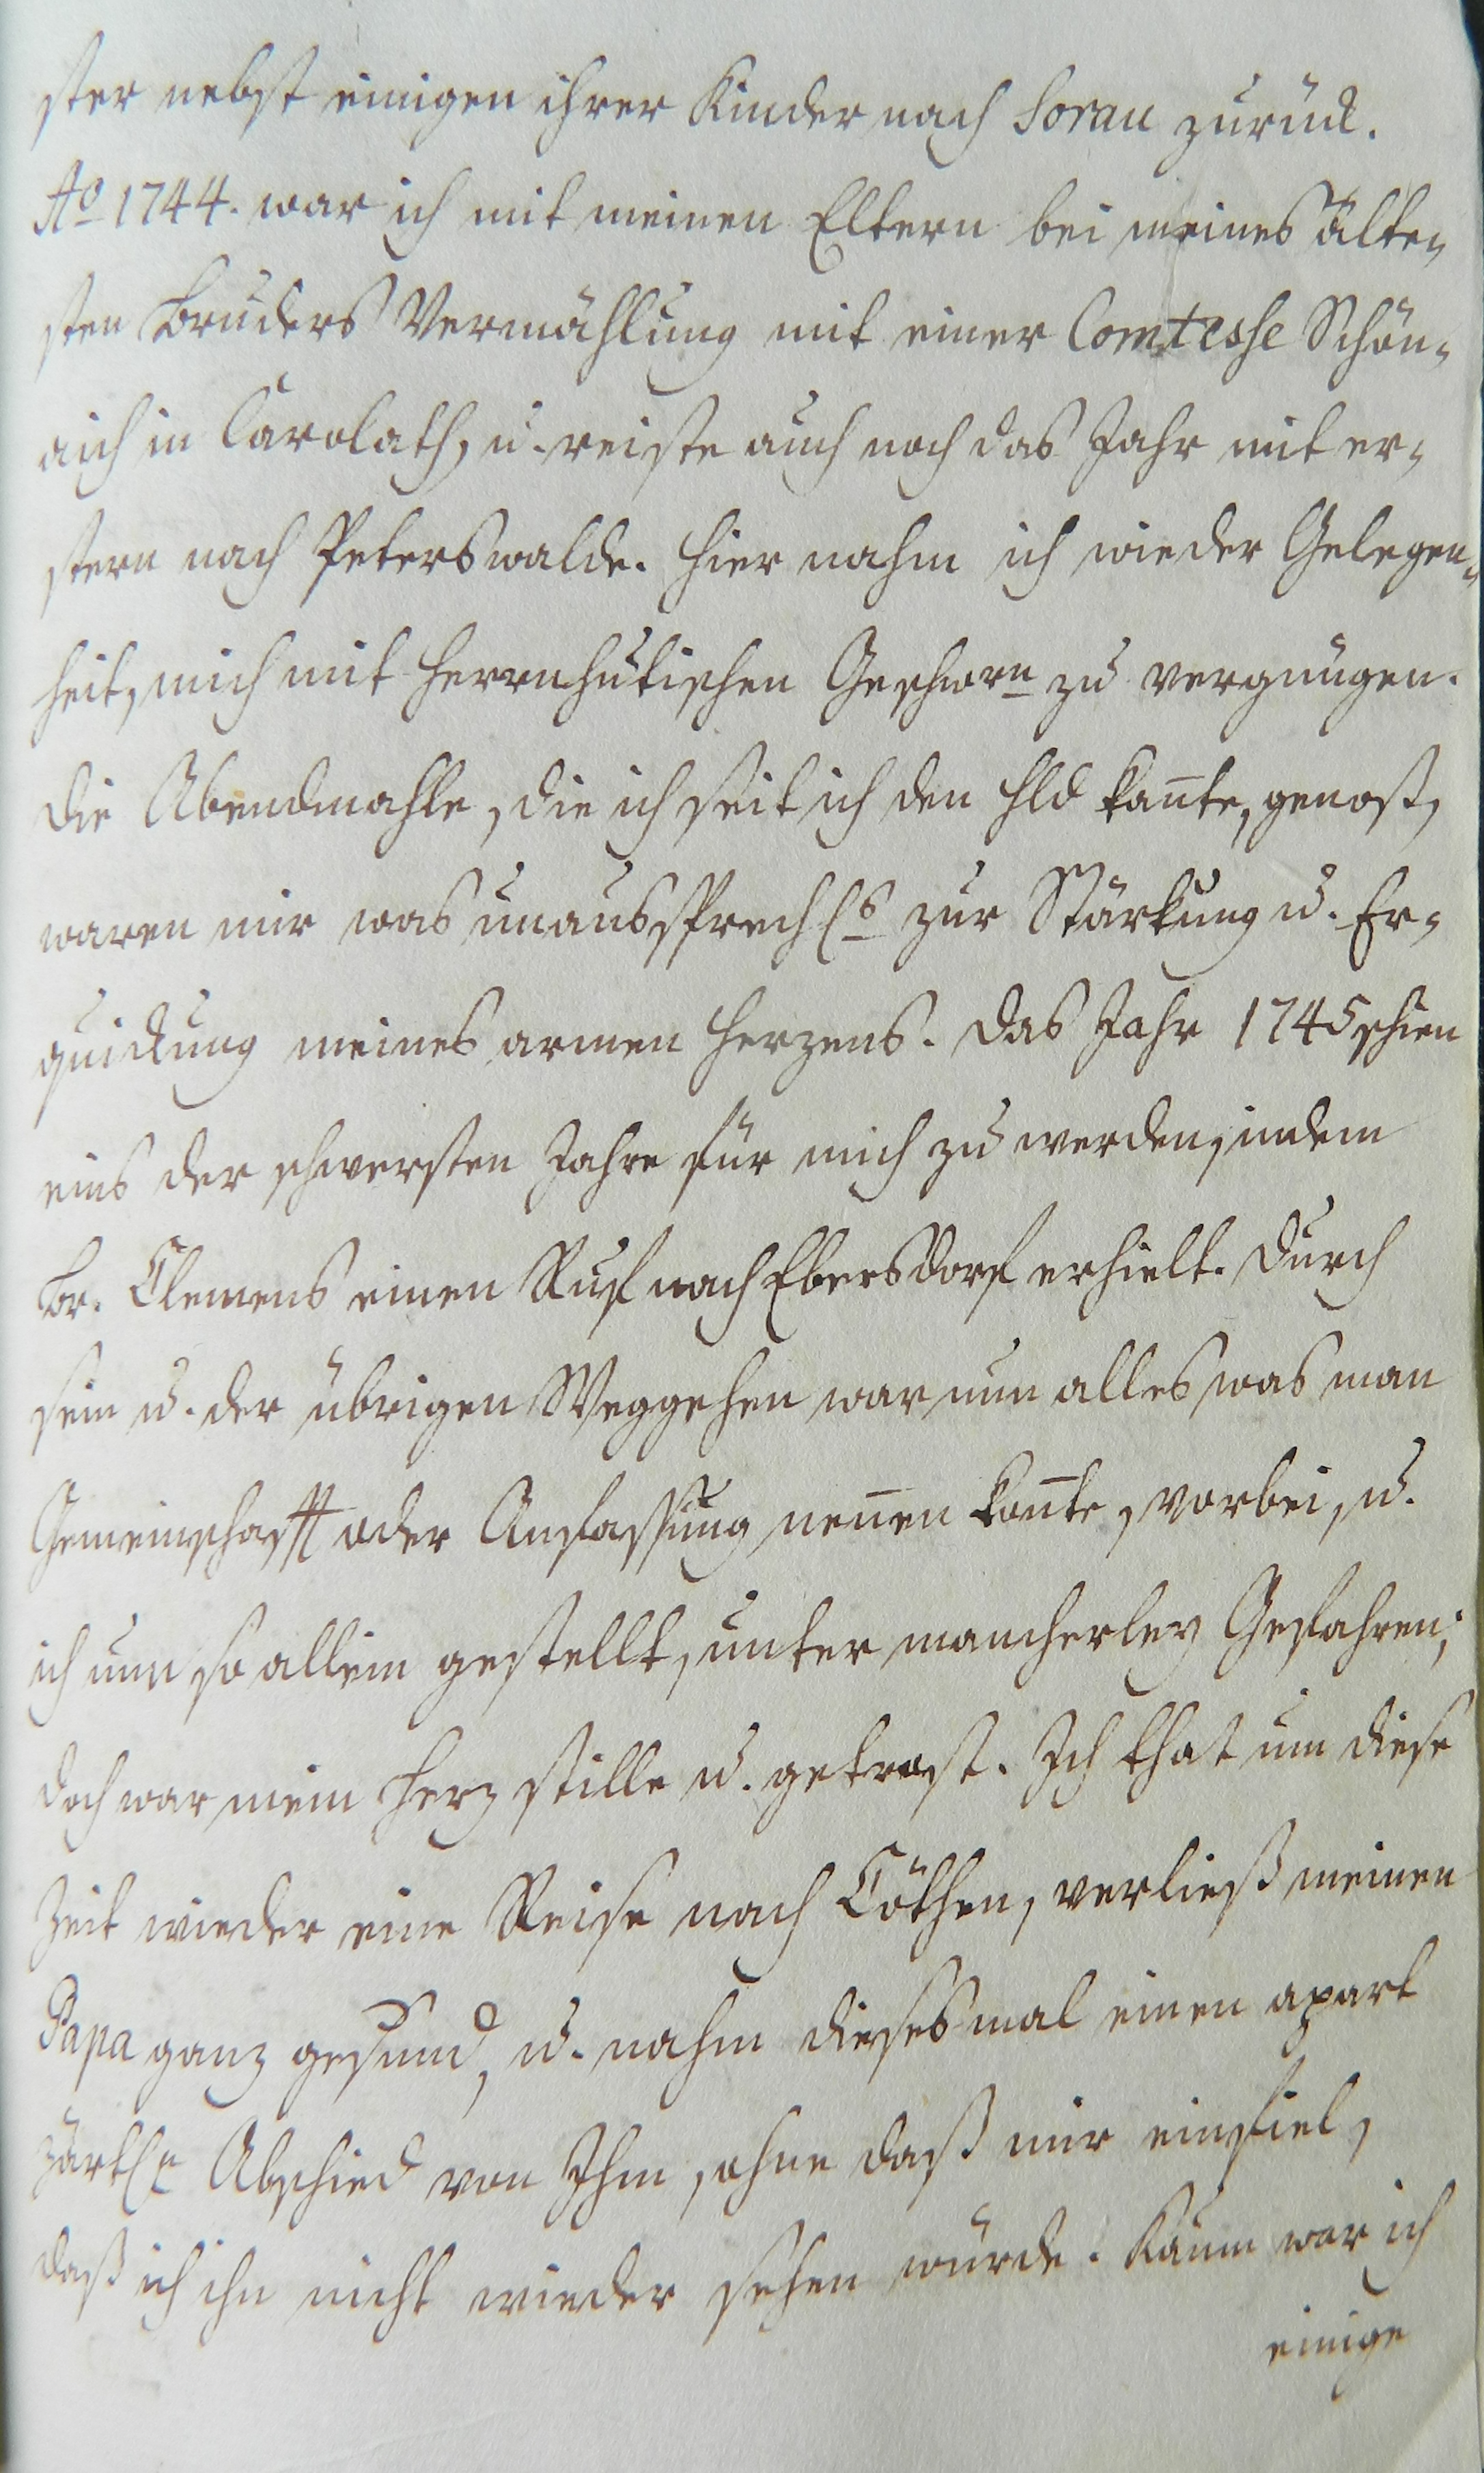 ster nebst einigen ihrer Kinder nach Sorau zurück.
Ao 1744. war ich mit meinen Eltern bei meines älte-
sten Bruders Vermählung mit einer Comtesse Schön-
aich in Carolath, u. reiste auch noch das Jahr mit er-
stern nach Peterswalde. Hier nahm ich wieder Gelegen-
heit, mich mit Herrnhutischen Geschwrn zu vergnügen.
Die Abendmahle, die ich seit ich den Hld kan̅te, genoß,
waren mir was unaussprechls zur Stärkung u. Er-
quickung meines armen Herzens. Das Jahr 1745 schien
eins der schwersten Jahre für mich zu werden, indem
Br. Clemens einen Ruf nach Ebersdorf erhielt. Durch
sein u. der übrigen Weggehen war nun alles was man
Gemeinschafft oder Anfassung nen̅en kon̅te, vorbei, u.
ich nun so allein gestellt, unter mancherley Gefahren;
doch war mein Herz stille u. getrost. Ich that um diese
Zeit wieder eine Reise nach Cöthen, verließ meinen
Papa ganz gesund, u. nahm dieses mal einen apart
zärtln Abschied von Ihm, ohne daß mir einfiel,
daß ich ihn nicht wieder sehen würde. Kaum war ich
einige